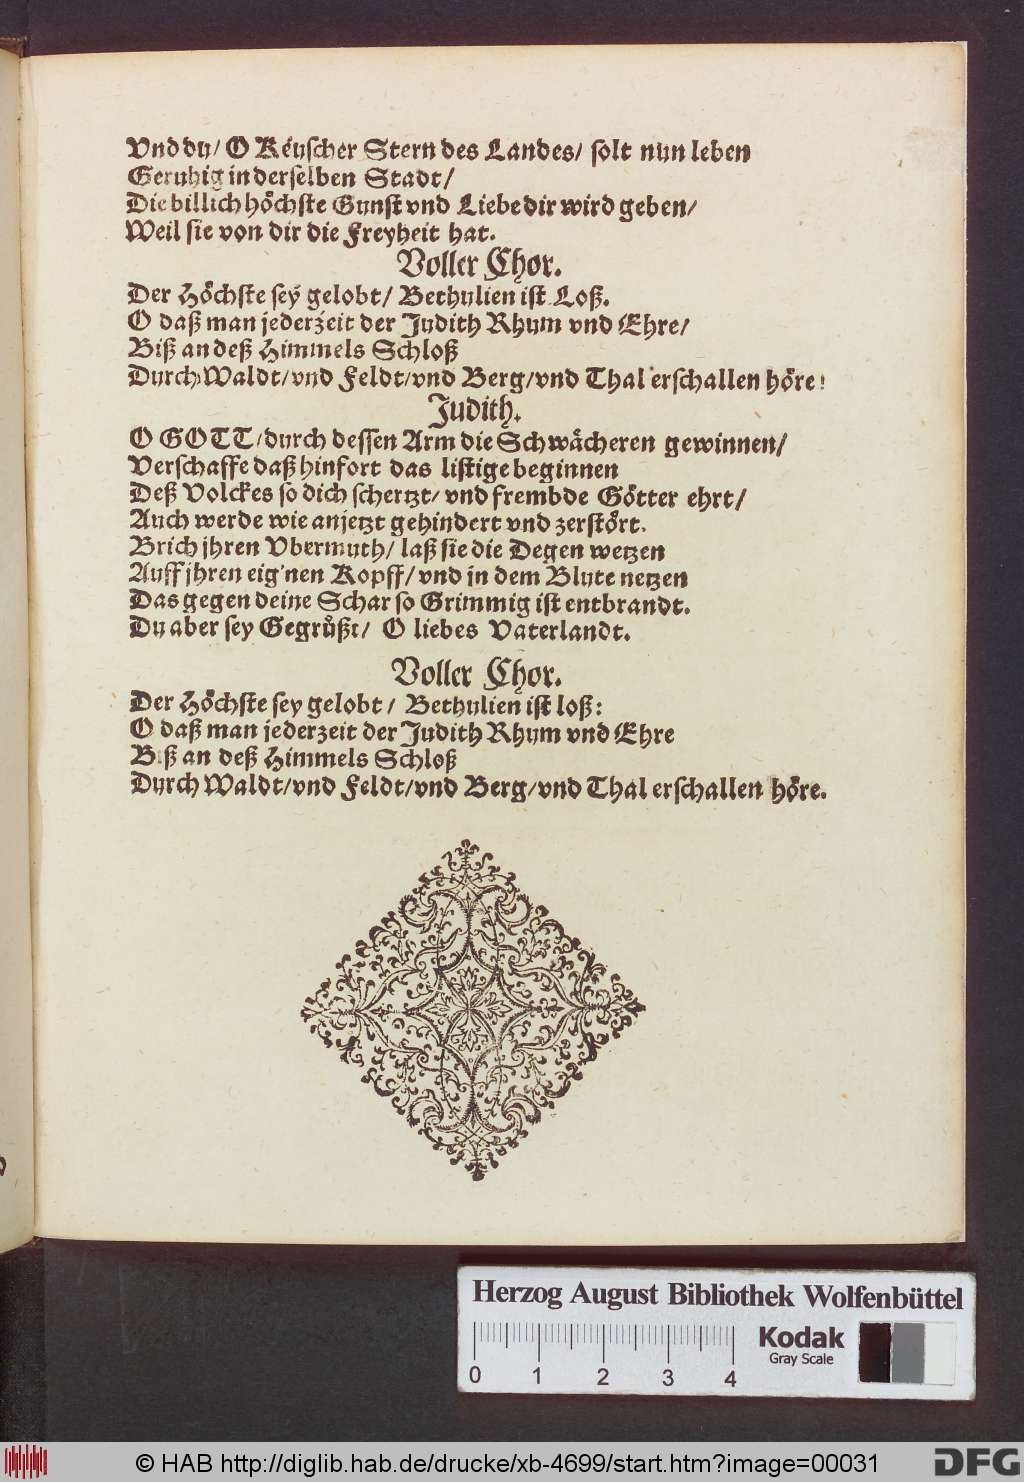 Vnd du/ O Keuscher Stern des Landes/ solt nun leben
Geruhig in derselben Stadt/
Die billich höchste Gunst vnd Liebe dir wird geben/
Weil sie von dir die Freyheit hat.
Voller Chor.
Der Höchste sey gelobt/ Bethulien ist Loß.
O daß man jederzeit der Judith Rhum vnd Ehre/
Biß an deß Himmels Schloß
Durch Waldt/vnd Feldt/vnd Berg/vnd Thal erschallen höre!
Judith.
O GOTT/durch dessen Arm die Schwächeren gewinnen/
Verschaffe daß hinfort das listige beginnen
Deß Volckes so dich schertzt/ vnd frembde Götter ehrt/
Auch werde wie anjetzt gehindert vnd zerstört.
Brich jhren Vbermuth/ laß sie die Degen wetzen
Auff jhren eig'nen Kopff/ vnd in dem Blute netzen
Das gegen deine Schar so Grimmig ist entbrandt.
Du aber sey Gegrüßt/ O liebes Vaterlandt.
Voller Chor.
Der Höchste sey gelobt/ Bethulien ist loß:
O daß man jederzeit der Judith Rhum vnd Ehre
Biß an deß Himmels Schloß
Durch Waldt/vnd Feldt/vnd Berg/vnd Thal erschallen höre.
Herzog August Bibliothek Wolfenbüttel
Kodak
Gray Scale
0 1 2 3 4
© HAB http://diglib.hab.de/drucke/xb-4699/start.htm?image=00031
DFG